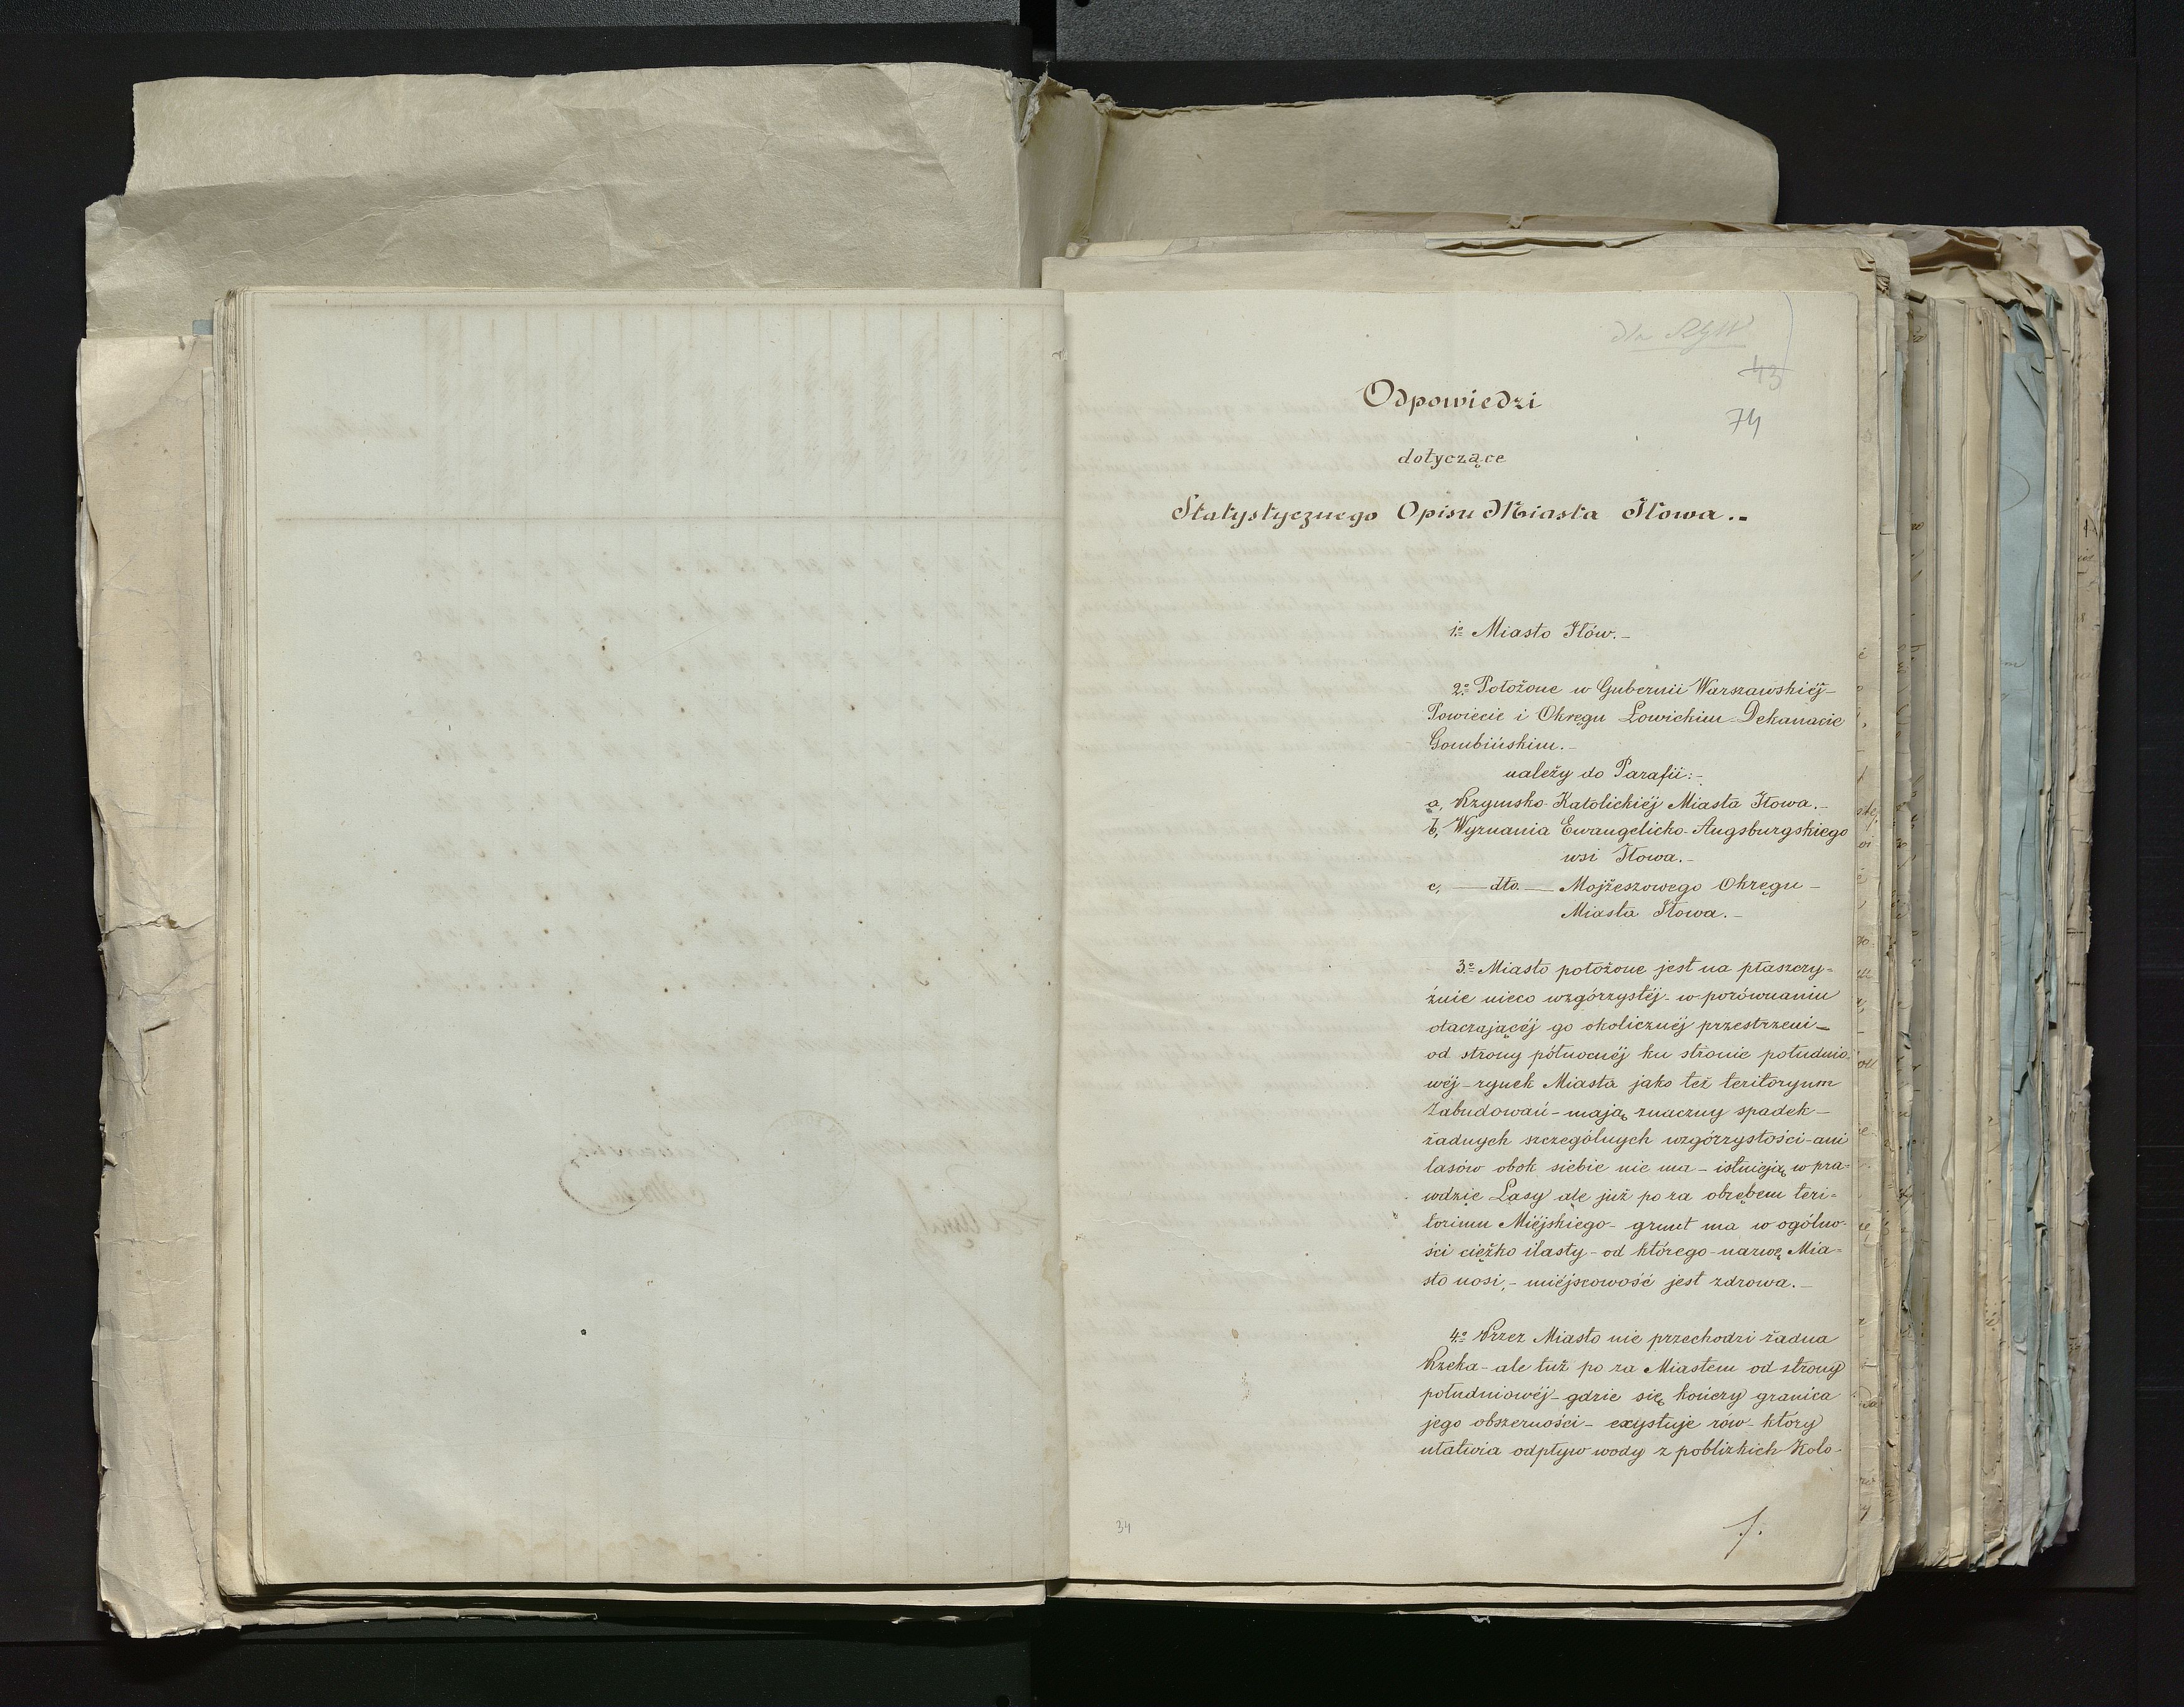 43
74
Odpowiedzi
dotyczące
Statystycznego Opisu Miasta Iłowa.-
1o Miasto Iłów.-
2o Położone w Gubernii Warszawskiéj-
Powiecie i Okręgu Łowickim Dekanacie
Gombińskim.-
należy do Parafii:-
a, Rzymsko-Katolickiéj Miasta Iłowa.-
b, Wyznania Ewangelicko-Augsburgskiego
wsi Iłowa.-
c, — dto — Mojżeszowego Okręgu-
Miasta Iłowa.-
3o Miasto położone jest na płaszczy=
źnie nieco wzgórzystéj- w porównaniu
otaczającéj go okolicznéj przestrzeni-
od strony północnéj ku stronie południo
wéj-rynek Miasta jako też teritoryum
Zabudowań-mają znaczny spadek-
żadnych szczególnych wzgórzystości-ani
lasów obok siebie nie ma-istnieją w pra=
wdzie Lasy ale już po za obrębem teri=
torium Miéjskiego- grunt ma w ogólno-
ści ciężko ilasty-od którego-nazwę Mia=
sto nosi,-miéjscowość jest zdrowa.-
4o Przez Miasto nie przechodzi żadna
Rzeka-ale tuż po za Miastem od strony
południowéj-gdzie się kończy granica
jego obszerności- exystuje rów-który
ułatwia odpływ wody z poblizkich Kolo-
34